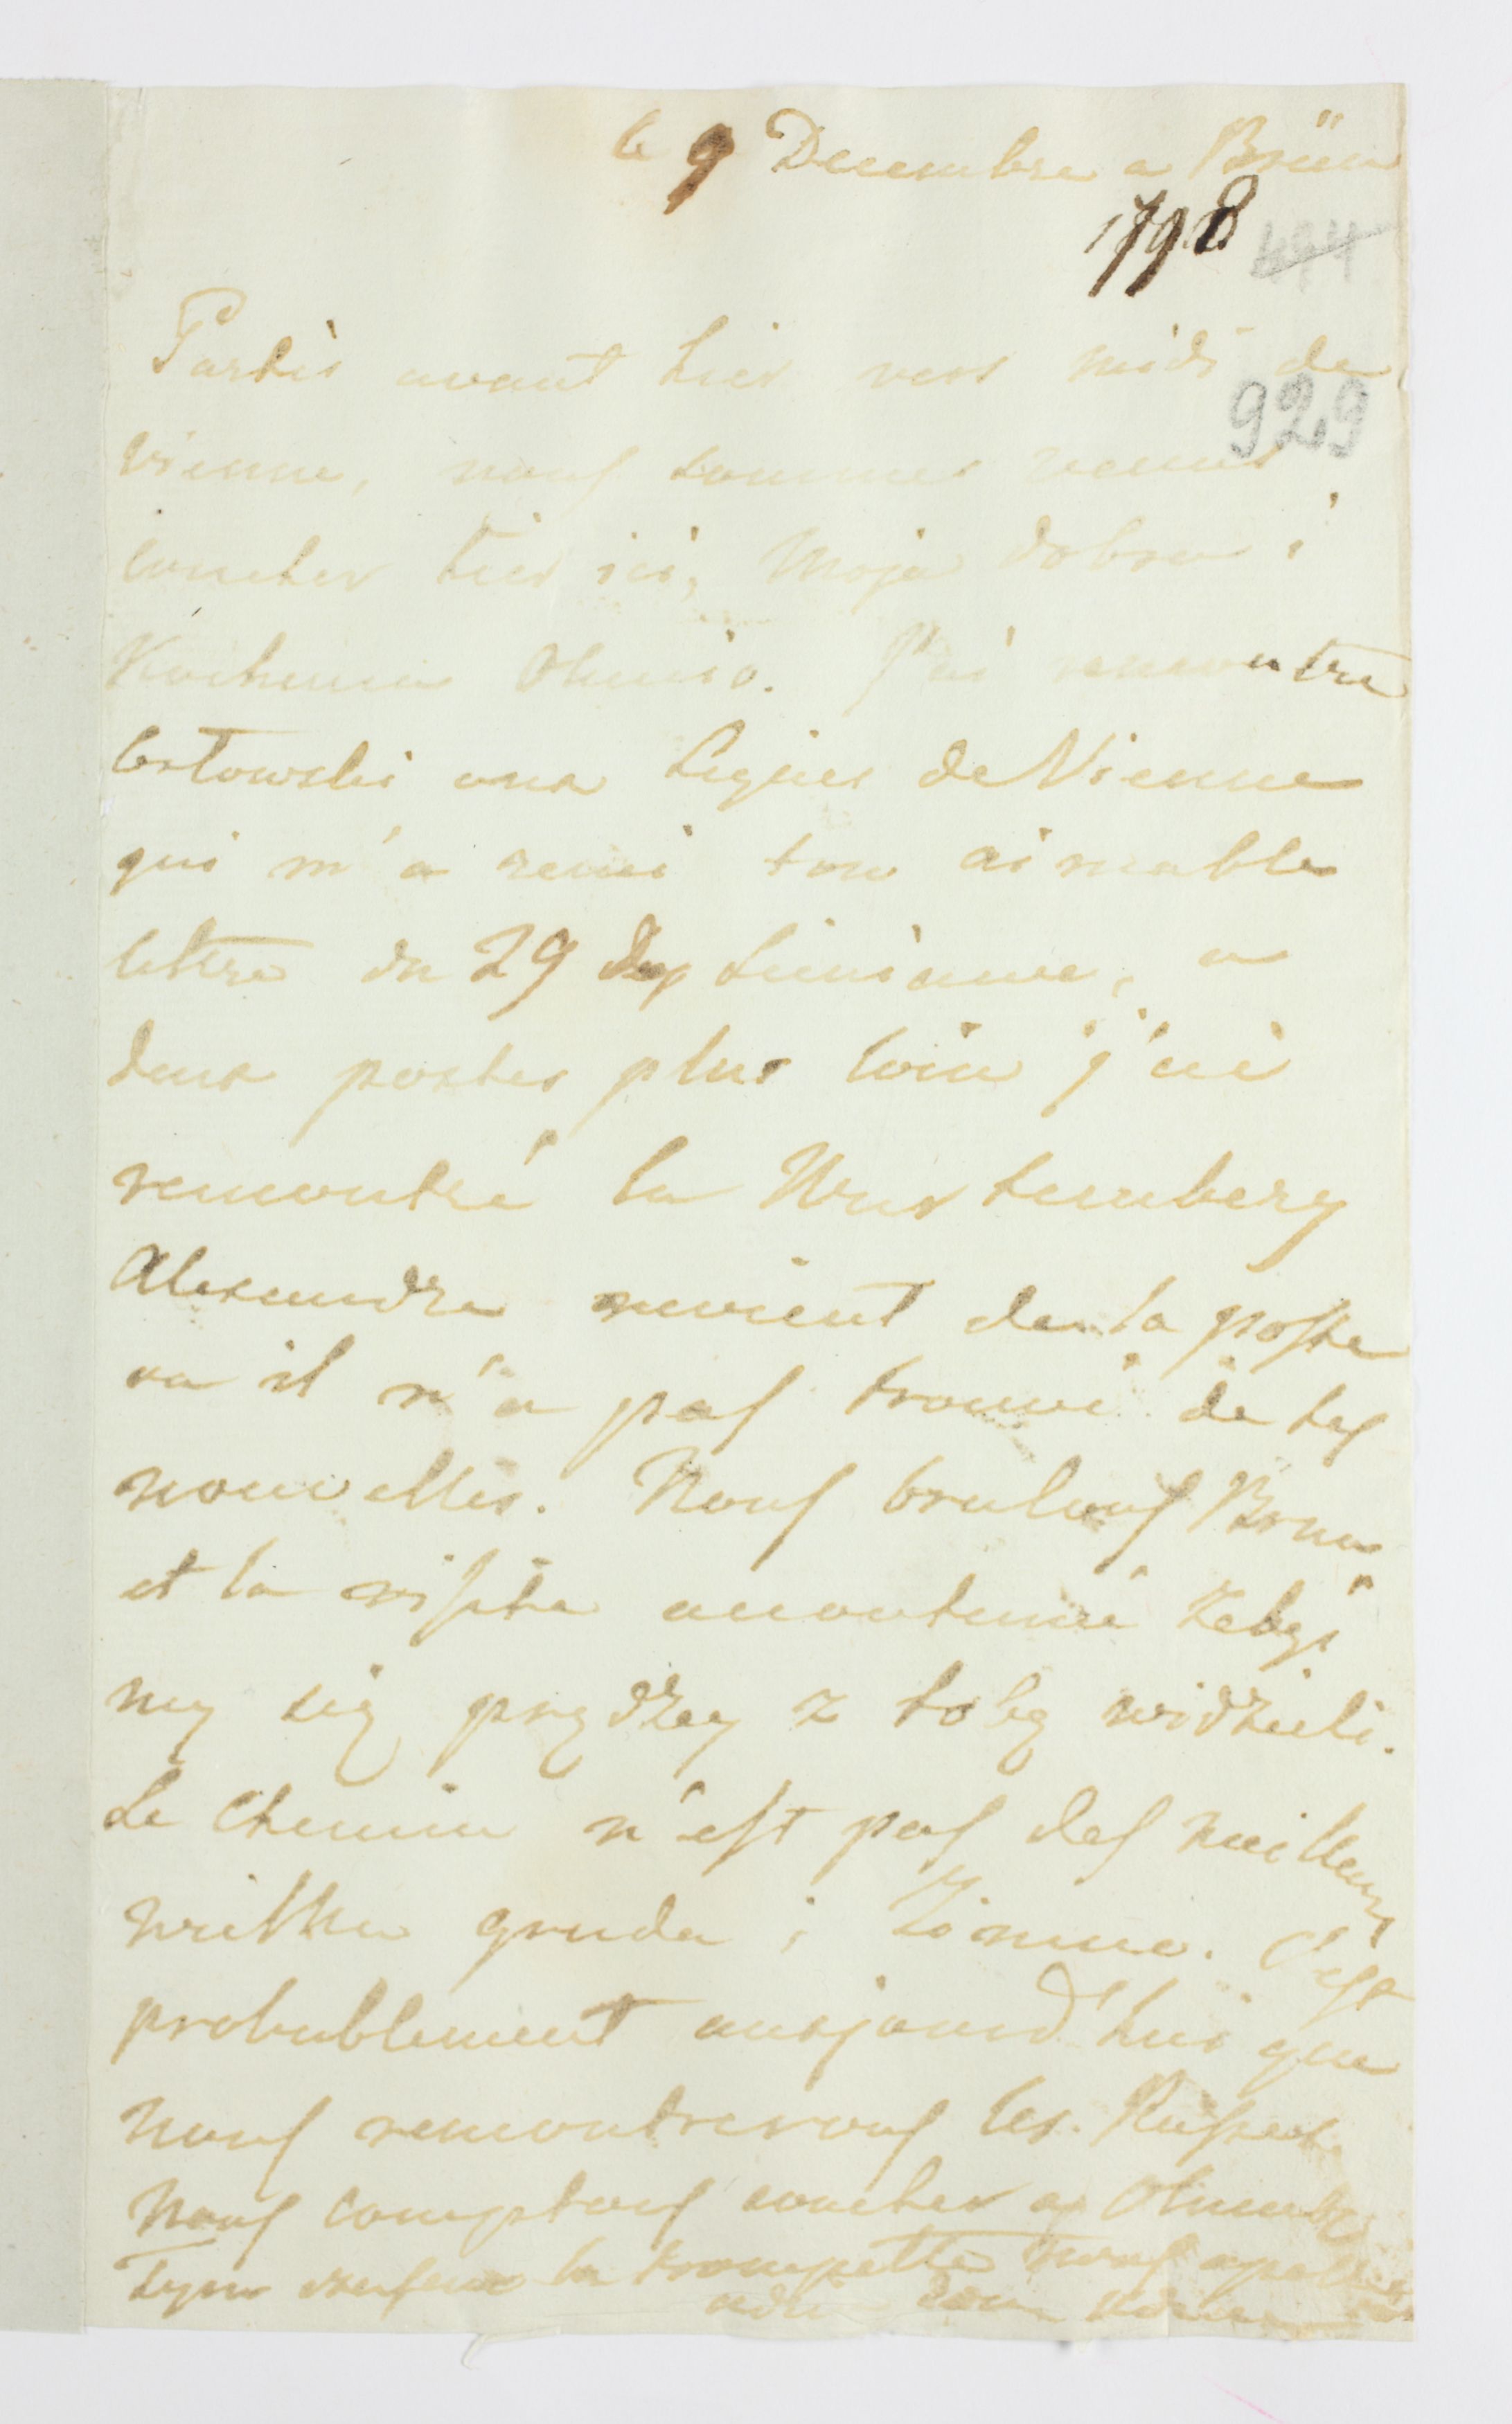 le 9 Decembre a Brün
1798
494
929
Partis avant hier vers midi de
vienne, nouf sommes venus
coucher hier ici, Moja dobra i
Kochana Olunio. J'ai rencontre
aux Lignes de Vienne
qui m'a remi ton aimable
lettre du 29 de Sieniawe, a
deux postes plus loin j'ai
rencontré la Wurtemberg
Alexandre revient de la poste
ou il n'a paf trouvé de tes
nouvelles. Nouf brulonf Brun
et la visite accoutumé żebyś
my się prędzey z tobą widzieli.
Le Chemin n'est paf def meilleurs
wielka gruda i Zimno. C'est
probablement aujourd'hui que
nouf rencontreronf les Russes.
Nouf comptonf coucher a Olmutz
Tym czasem la trompette nouf apelle